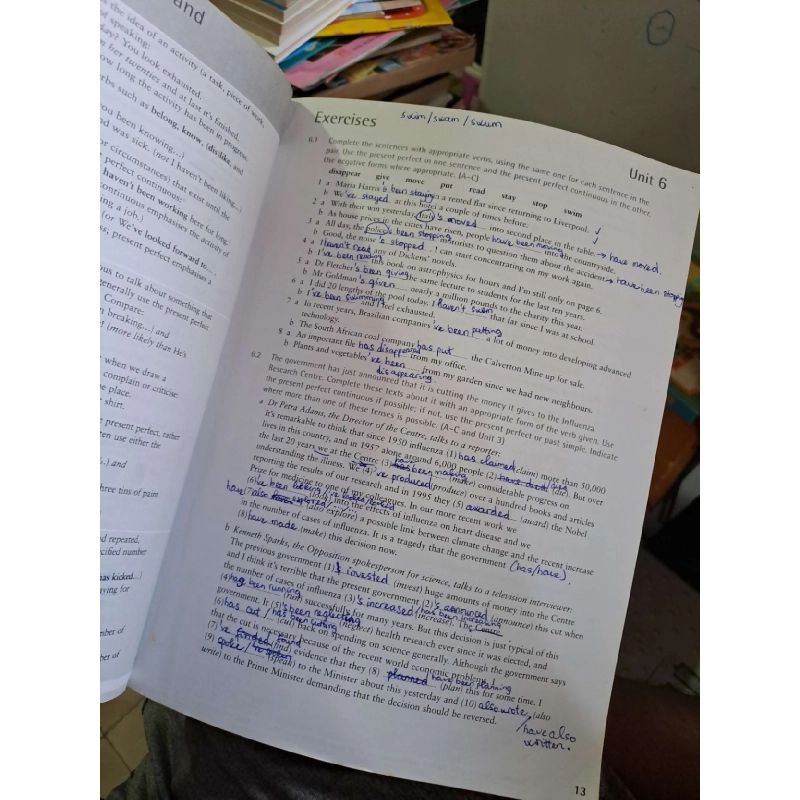 and
the idea of an activity (a task, piece of work,
of speaking:
You look exhausted.
her twenties and at last it's finished.
ow long the activity has been in progress.
rbs such as belong, know, (dis)like, and
you been knowing...)
ad was sick. (not I haven't been liking...)
r circumstances) that exist until the
perfect continuous:
haven't been working here for long.
continuous emphasises the activity of
ng a job.)
(or We've looked forward to...
s; present perfect emphasises a
ous to talk about something that
generally use the present perfect
Compare:
n breaking...) and
! (more likely than He's
when we draw a
complain or criticise:
e place.
shirt.
present perfect, rather
ten use either the
...) and
three tins of paint
d repeated,
cified number
has kicked...)
aying for
mber of
mber of
Exercises
swim/swam/swum
Unit 6
6.1 Complete the sentences with appropriate verbs, using the same one for each sentence in the
pair. Use the present perfect in one sentence and the present perfect continuous in the other.
Use negative forms where appropriate. (A–C)
disappear give move put read stay stop swim
1 a Maria Harris 's been staying in a rented flat since returning to Liverpool. ✓
b We 've stayed at this hotel a couple of times before.
2 a With their win yesterday, Italy 's moved into second place in the table. ✓
b As house prices in the cities have risen, people have been moving into the countryside. → have moved.
3 a All day, the police 's been stopping motorists to question them about the accident. → have been stopping
b Good, the noise 's stopped. I can start concentrating on my work again.
4 a I haven't read any of Dickens' novels.
b I 've been reading this book on astrophysics for hours and I'm still only on page 6.
5 a Dr Fletcher 's been giving the same lecture to students for the last ten years.
b Mr Goldman 's given nearly a million pounds to the charity this year.
6 a I did 20 lengths of the pool today. I haven't swum that far since I was at school.
b I 've been swimming and I feel exhausted.
7 a In recent years, Brazilian companies 've been putting a lot of money into developing advanced
technology.
b The South African coal company has put the Calverton Mine up for sale.
8 a An important file has disappeared from my office.
b Plants and vegetables 've been disappearing from my garden since we had new neighbours.
6.2 The government has just announced that it is cutting the money it gives to the Influenza
Research Centre. Complete these texts about it with an appropriate form of the verb given. Use
the present perfect continuous if possible; if not, use the present perfect or past simple. Indicate
where more than one of these tenses is possible. (A–C and Unit 3)
a Dr Petra Adams, the Director of the Centre, talks to a reporter:
it's remarkable to think that since 1950 influenza (1) has claimed (claim) more than 50,000
lives in this country, and in 1957 alone around 6,000 people (2) (die). But over
the last 20 years we at the Centre (3) been making (make) considerable progress on
understanding the illness. We (4) 've produced (produce) over a hundred books and articles
reporting the results of our research and in 1995 they (5) awarded (award) the Nobel
Prize for medicine to one of my colleagues. In our more recent work we
(6) 've been looking / 've looked (look) into the effects of influenza on heart disease and we
have (7) also explored / ... (also explore) a possible link between climate change and the recent increase
in the number of cases of influenza. It is a tragedy that the government (has/have)
(8) have made (make) this decision now.
b Kenneth Sparks, the Opposition spokesperson for science, talks to a television interviewer:
The previous government (1) invested (invest) huge amounts of money into the Centre
and I think it's terrible that the present government (2) 's announced (announce) this cut when
the number of cases of influenza (3) 's increased / has been increasing (increase). The Centre
(4) has been running (run) successfully for many years. But this decision is just typical of this
government. It (5) 's been neglecting (neglect) health research ever since it was elected, and
(6) has cut / has been cutting (cut) back on spending on science generally. Although the government says
that the cut is necessary because of the recent world economic problems, I
(7) 've found (find) evidence that they (8) planned have been planning (plan) this for some time. I
(9) spoke / 've spoken (speak) to the Minister about this yesterday and (10) also wrote / have also written. (also
write) to the Prime Minister demanding that the decision should be reversed.
13